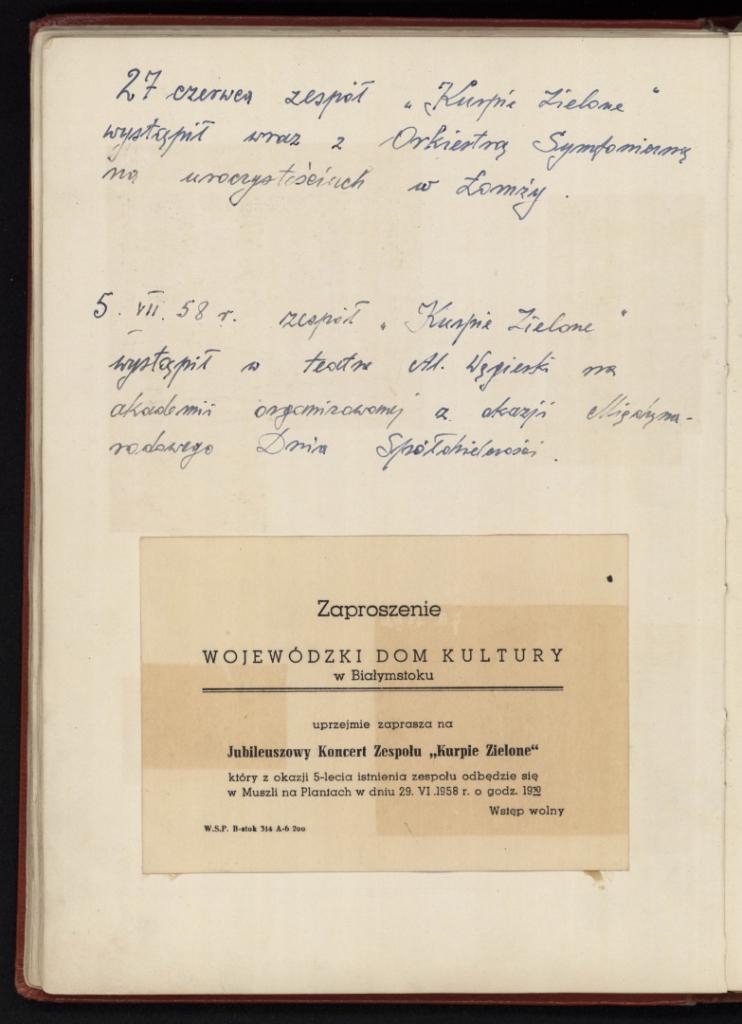 27 czerwca zespół „Kurpie Zielone"
wystąpił wraz z Orkiestrą Symfoniczną
na uroczystościach w Łomży.
5. VII. 58 r. zespół „Kurpie Zielone"
wystąpił w teatrze Al. Węgierki na
akademii organizowanej z okazji Międzyna-
rodowego Dnia Spółdzielczości.
Zaproszenie
WOJEWÓDZKI DOM KULTURY
w Białymstoku
uprzejmie zaprasza na
Jubileuszowy Koncert Zespołu „Kurpie Zielone"
który z okazji 5-lecia istnienia zespołu odbędzie się
w Muszli na Plantach w dniu 29. VI .1958 r. o godz. 19³⁰
Wstęp wolny
W.S.P. B-stok 314 A-6 200